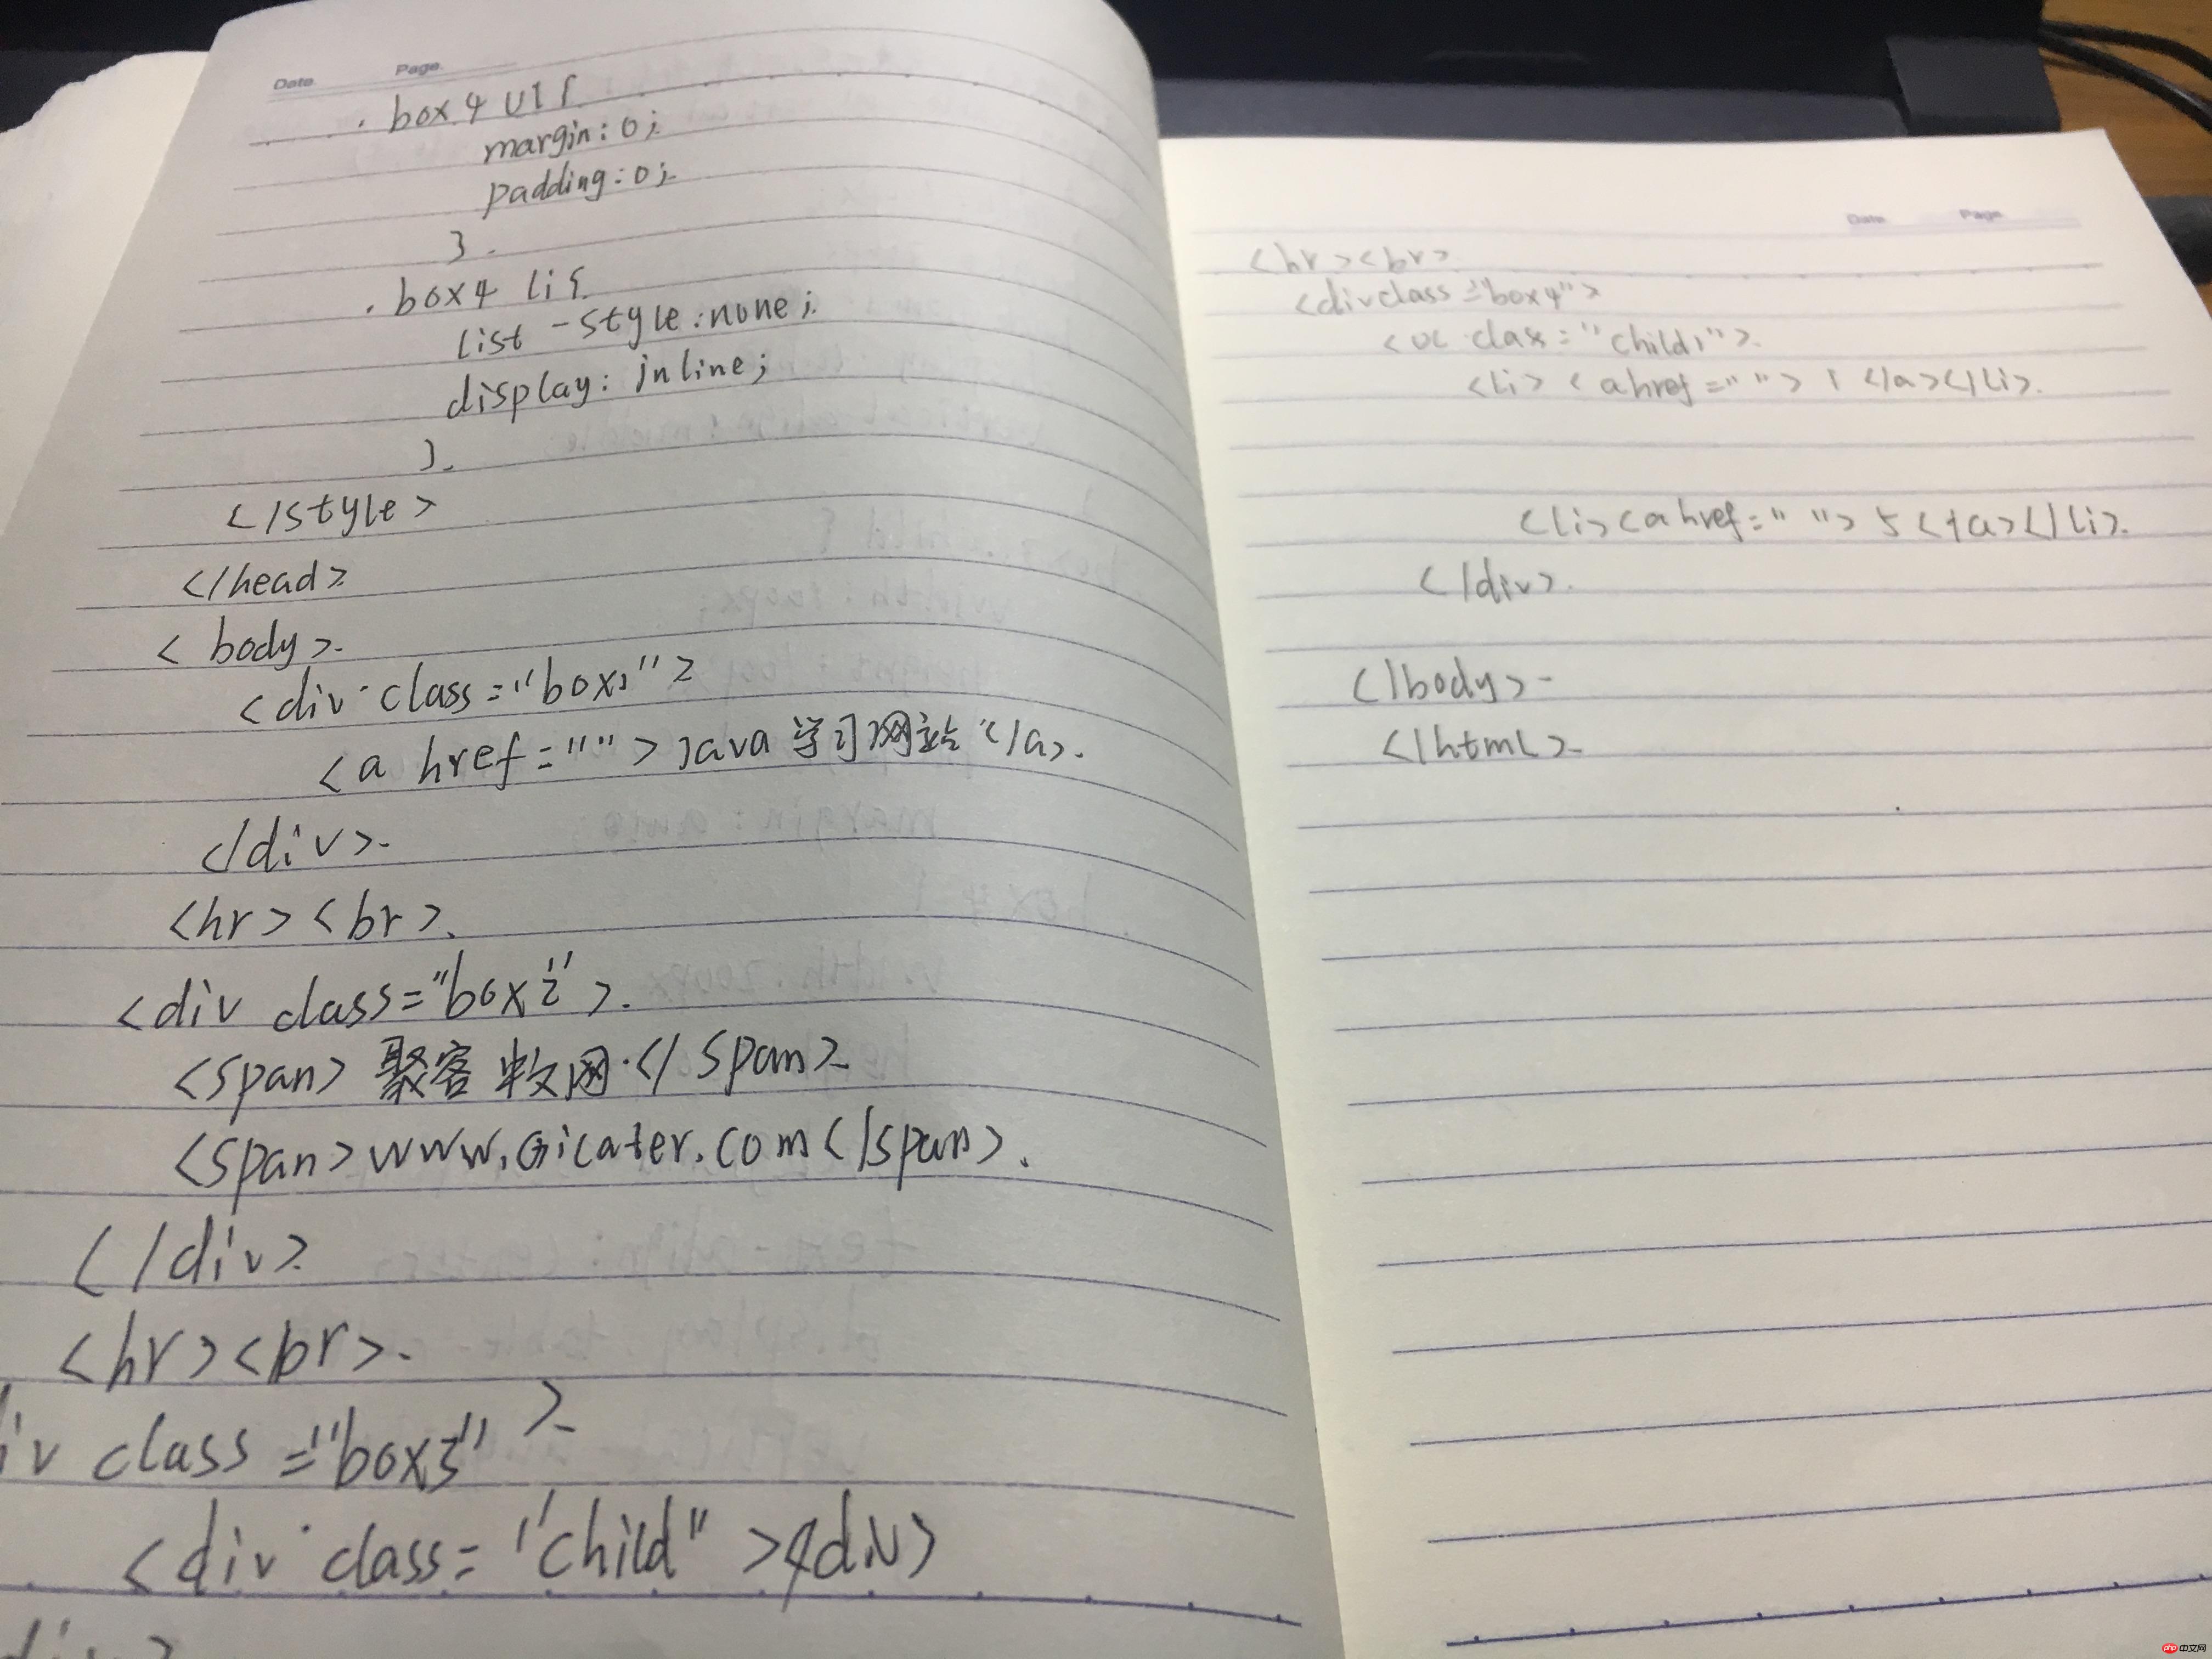 Date Page
.box4 ul{
margin:0;
padding:0;
}
.box4 li{
list-style:none;
display:inline;
}
</style>
</head>
<body>
<div class="box1">
<a href="">Java 学习网站</a>
</div>
<hr><br>
<div class="box2">
<span>聚客 网</span>
<span>www.Gicater.com</span>
</div>
<hr><br>
iv class="box3">
<div class="child"></div>
div>
Date Page
<hr><br>
<div class="box4">
<ul class="child1">
<li><a href="">1</a></li>
<li><a href="">5</a></li>
</div>
</body>
</html>
php 中文网